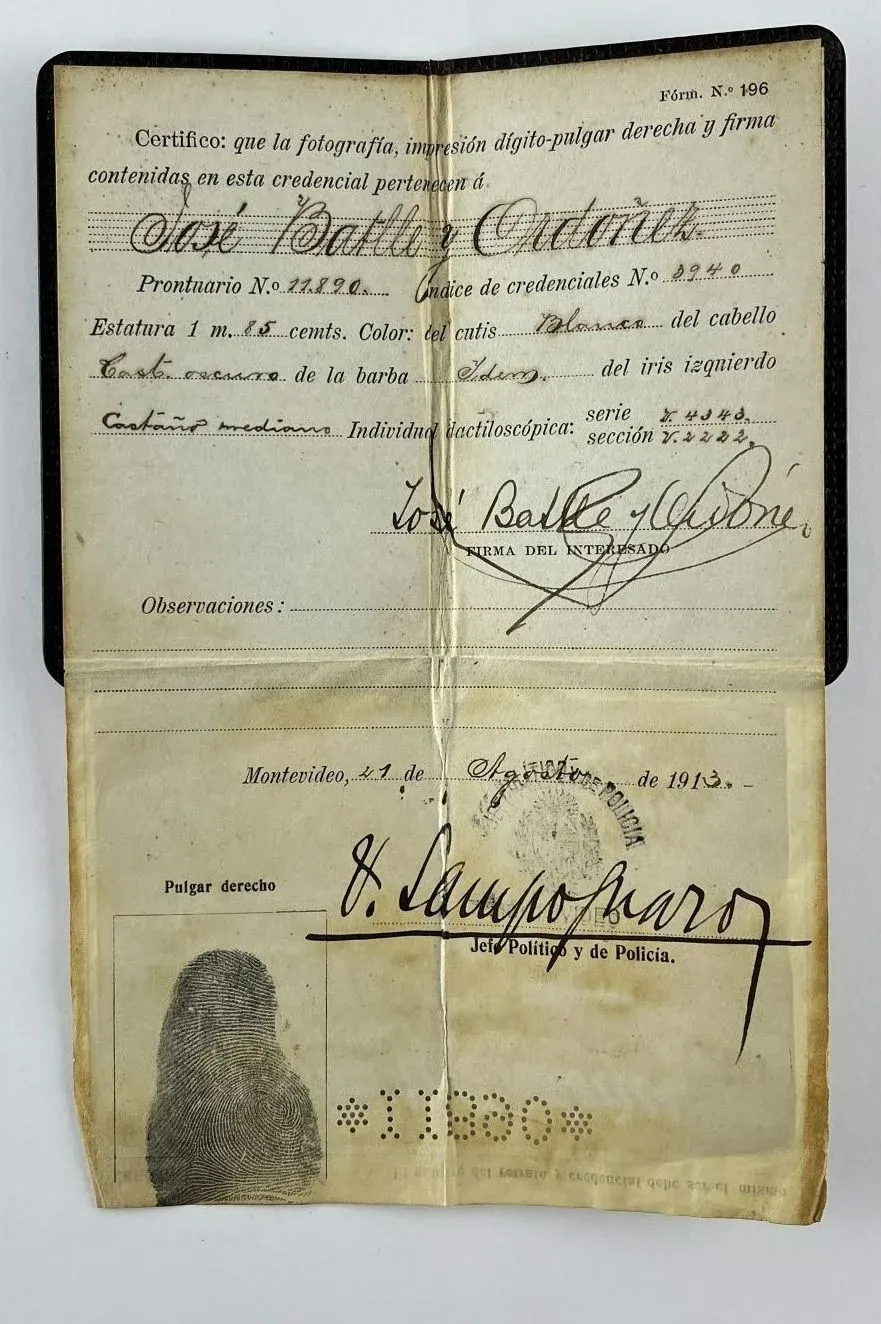 Fórm. N.º 196
Certifico: que la fotografía, impresión dígito-pulgar derecha y firma
contenidas en esta credencial pertenecen á
José Batlle y Ordoñez.
Prontuario N.º 11.890. Indice de credenciales N.º 3940
Estatura 1 m. 85 cemts. Color: del cutis Blanco del cabello
Cast. oscuro de la barba Idem. del iris izquierdo
Castaño mediano Individual dactiloscópica: serie V. 4343.
sección V. 2222.
José Batlle y Ordóñez
FIRMA DEL INTERESADO
Observaciones:
Montevideo, 21 de Agosto de 1913.
POLÍTICA Y DE POLICIA
Pulgar derecho
V. Sampognaro
Jefe Político y de Policía.
*11890*
El número del retrato y credencial debe ser el mismo